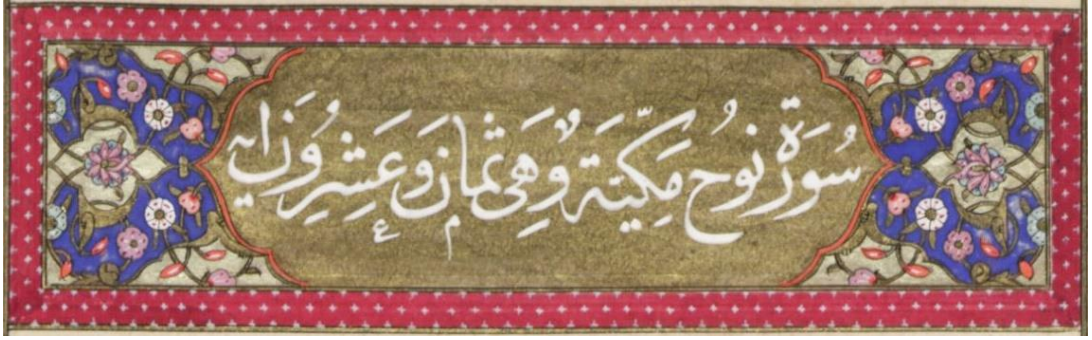 سُورَة نوُح مَكّيَّة وَهِيَ ثمانَ وَعَشِرُونَ ايه